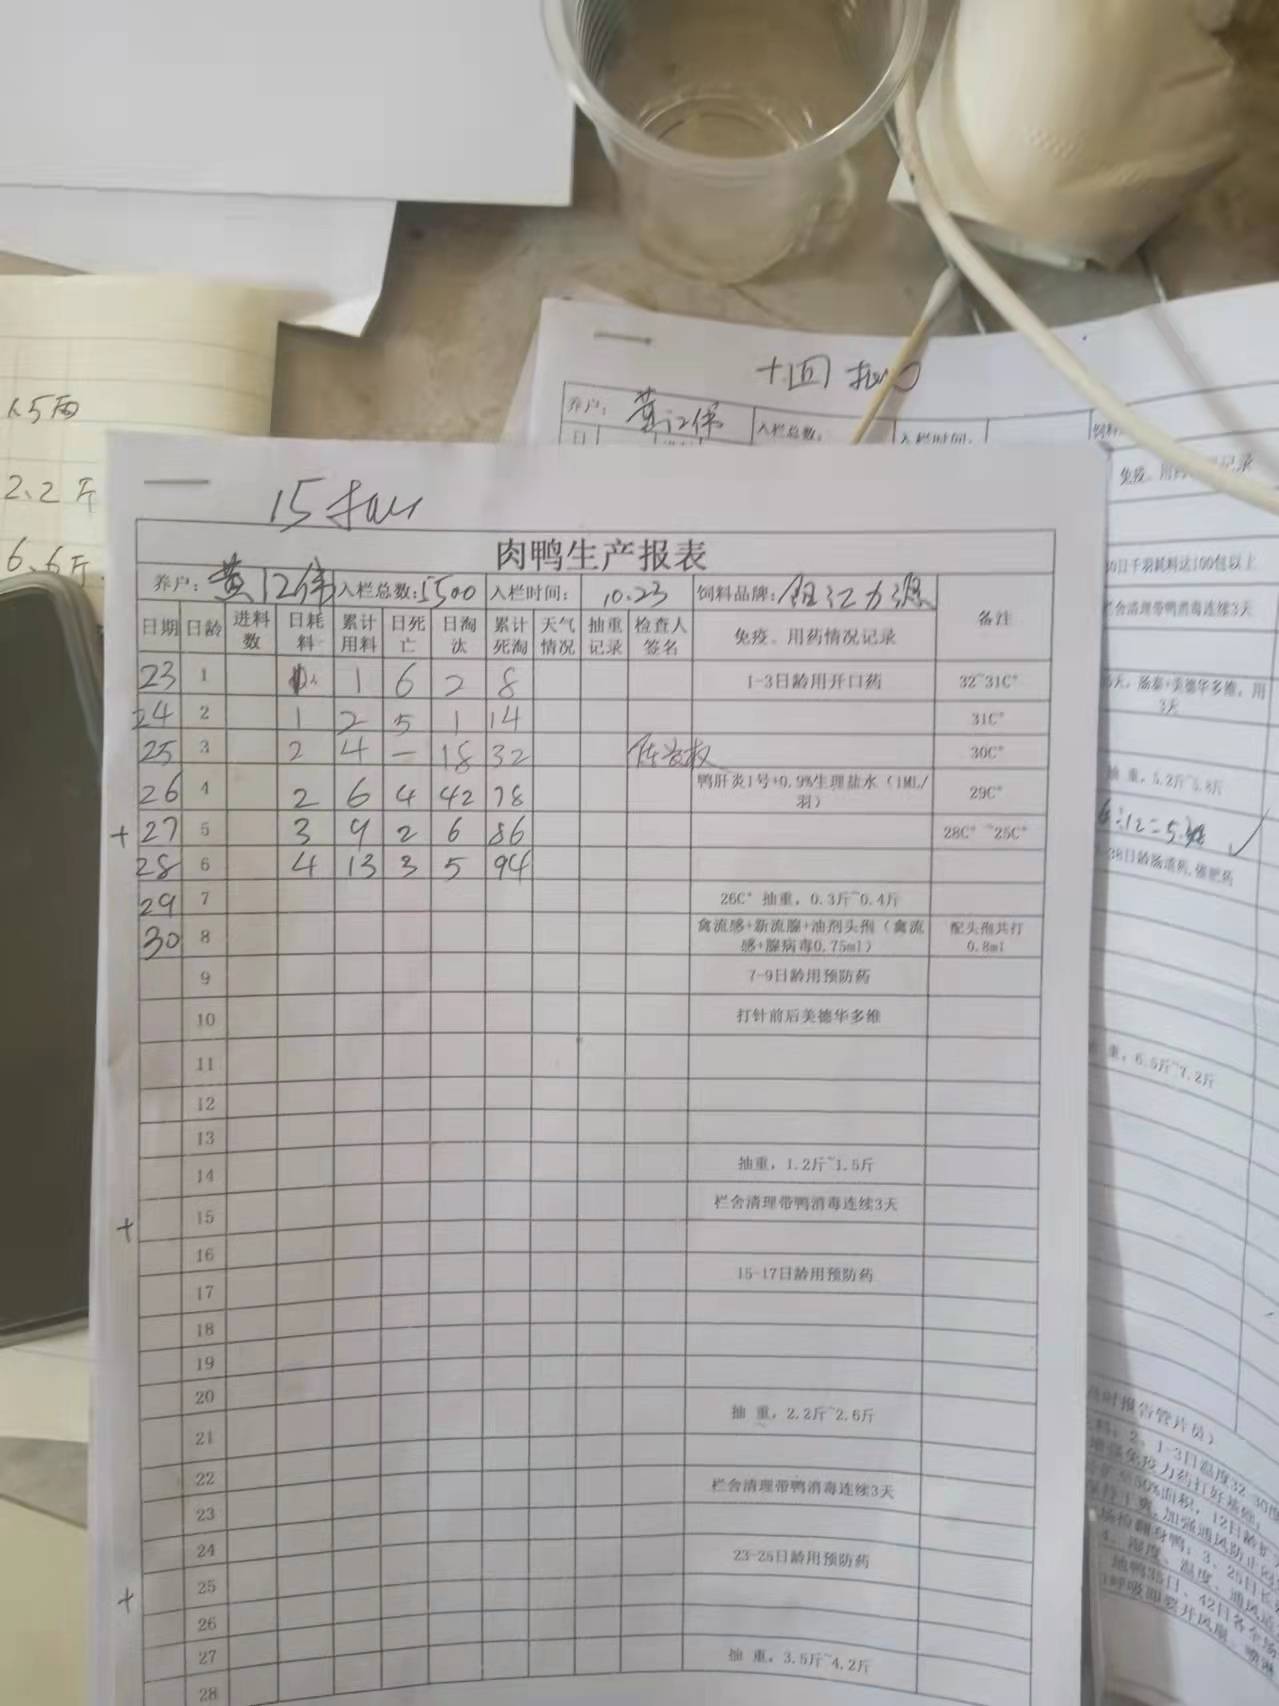 1.5百
2.2斤
6.6斤
十四批
养户: 黄江伟 入栏总数: 入栏时间:
15批
肉鸭生产报表
养户: 黄江伟 入栏总数: 5500 入栏时间: 10.23 饲料品牌: 力源 备注
日期 日龄 进料数 日耗料 累计用料 日死亡 日淘汰 累计死淘 天气情况 抽重记录 检查人签名 免疫、用药情况记录
23 1 1 1 6 2 8 1-3日龄用开口药 32~31C°
24 2 1 2 5 1 14 31C°
25 3 2 4 — 18 32 30C°
26 4 2 6 4 42 78 鸭肝炎1号+0.9%生理盐水(1ML/羽) 29C°
+ 27 5 3 9 2 6 86 28C°~25C°
28 6 4 13 3 5 94
29 7 26C° 抽重,0.3斤~0.4斤
30 8 禽流感+新流腺+油剂头孢(禽流感+腺病毒0.75ml) 配头孢共打0.8ml
9 7-9日龄用预防药
10 打针前后美德华多维
11
12
13
14 抽重,1.2斤~1.5斤
+ 15 栏舍清理带鸭消毒连续3天
16
17 15-17日龄用预防药
18
19
20
21 抽 重,2.2斤~2.6斤
22
23 栏舍清理带鸭消毒连续3天
24 23-25日龄用预防药
+ 25
26
27 抽 重,3.5斤~4.2斤
28
免疫、用药 记录
30日千羽耗料达100包以上
栏舍清理带鸭消毒连续3天
肠泰+美德华多维,用3天
抽 重,5.2斤~5.8斤
38日龄肠道药,催肥药
重,6.5斤~7.2斤
时报告管片员)
2、1-3日温度32-30度
增强免疫力药打好基础
50%面积,12日龄扩
加强通风防止闷
检翻身鸭;3、25日长
4、湿度、温度、通风
地鸭35日、42日各个场
呼吸即要开风扇、喷淋